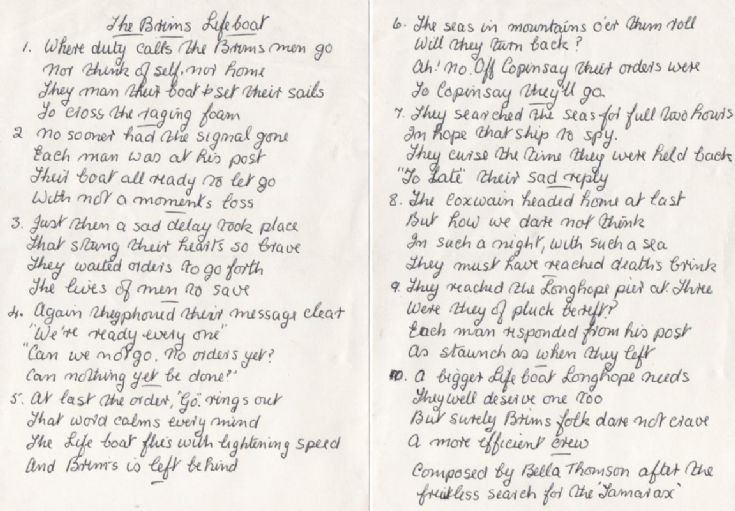 The Brims Lifeboat
1. Where duty calls the Brims men go
Nor think of self, nor home
They man their boat & set their sails
To cross the raging foam
2 No sooner had the signal gone
Each man was at his post
Their boat all ready to let go
With not a moments loss
3. Just then a sad delay took place
That stung their hearts so brave
They waited orders to go forth
The lives of men to save
4. Again they phoned their message clear
"We're ready every one"
"Can we not go. no orders yet?
Can nothing yet be done?"
5. At last the order, "Go" rings out
That word calms every mind
The Life boat flies with lightening speed
And Brims is left behind
6. The seas in mountains o'er them roll
Will they turn back?
Ah! no. Off Copinsay their orders were
To Copinsay they'll go
7. They searched the seas for full two hours
In hope that ship to spy.
They curse the time they were held back
"To Late" their sad reply
8. The Coxwain headed home at last
But how we dare not think
In such a night, with such a sea
They must have reached death's brink
9. They reached the Longhope pier at Three
Were they of pluck bereft?
Each man responded from his post
As staunch as when they left
10. A bigger Life boat Longhope needs
They well deserve one too
But surely Brims folk dare not crave
A more efficient crew
Composed by Bella Thomson after the
fruitless search for the 'Tamarax'